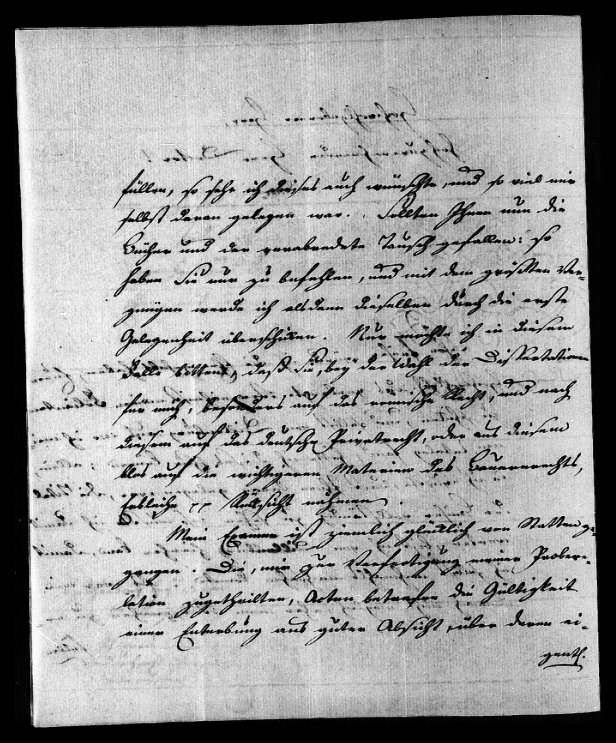 füllen, so sehr ich dieses auch wünschte, und so viel mir
selbst daran gelegen war. Sollten Ihnen nun die
Bücher und der verabredete Tausch gefallen: so
haben Sie nur zu befehlen, und mit dem größten Ver-
gnügen werde ich alsdann dieselben durch die erste
Gelegenheit überschicken. Nur möchte ich in diesem
Falle bitten, daß Sie, bey der Wahl der Dissertationen
für mich, besonders auf das römische Recht, und nach
diesem auf das deutsche Privatrecht, oder aus diesem
blos auf die wichtigeren Materien des Bauernrechts,
Erbleihe Rüksicht nähmen.
Mein Examen ist ziemlich glüklich von Statten ge-
gangen. Die, mir zur Verfertigung meiner Probere-
lation zugetheilten, Acten betrafen die Gültigkeit
einer Enterbung aus guter Absicht, über deren ei-
gentl.